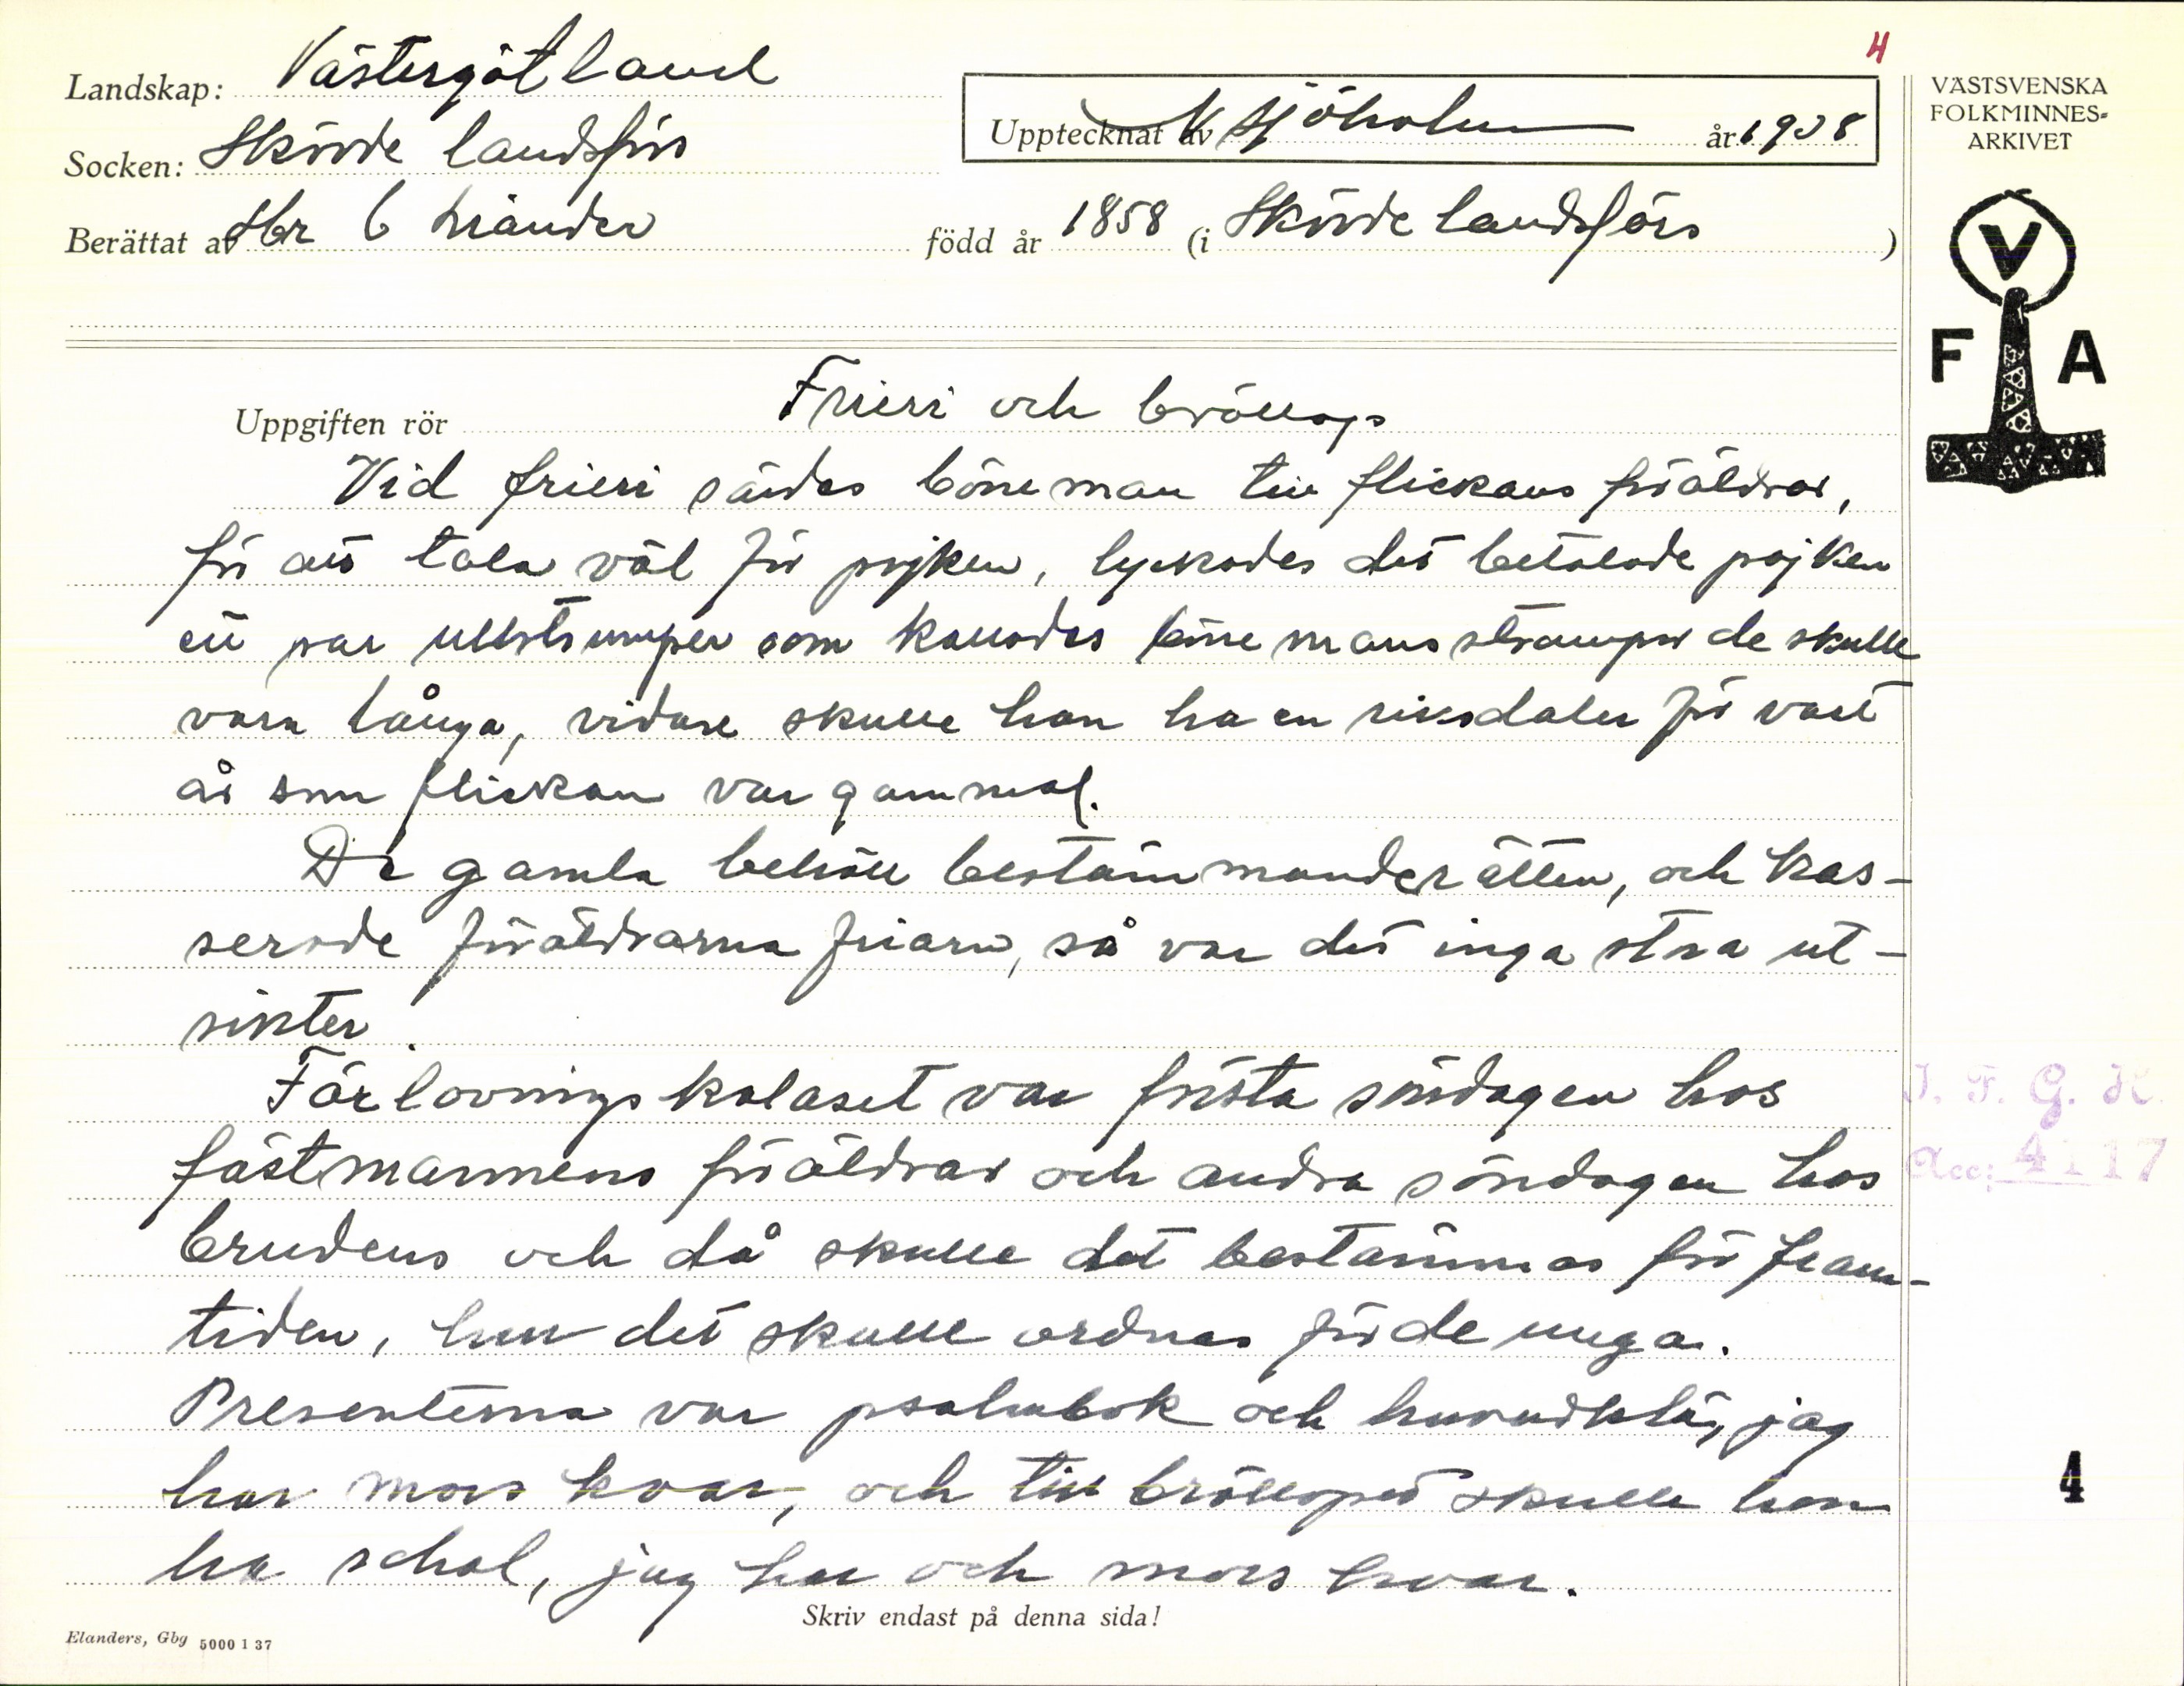 4
Landskap: Västergötland
Upptecknat av N Sjöholm år 1938
Socken: Skövde landsförs
Berättat av Hr 6 född år 1858 (i Skövde landsförs)
VÄSTSVENSKA
FOLKMINNES-
ARKIVET
V
F A
Uppgiften rör Frieri och bröllop
Vid frieri sändes böneman till flickans föräldrar,
för att tala väl för pojken, lyckades det betalade pojken
ett par ullstrumper som kallades bönemansstrumper de skulle
vara långa, vidare skulle han ha en riksdaler för vart
år som flickan var gammal.
De gamla behöll bestämmanderätten, och kas-
serade föräldrarna friarn, så var det inga stora ut-
sikter.
Förlovningskalaset var första söndagen hos
fästmannens föräldrar och andra söndagen hos
brudens och då skulle det bestämmas för fram-
tiden, hur det skulle ordnas för de unga.
Presenterna var psalmbok och huvudklä, jag
har mors kvar, och till bröllopet skulle hon
ha schal, jag har och mors kvar.
I. F. G. H.
Acc: 4117
4
Skriv endast på denna sida!
Elanders, Gbg 5000 1 37